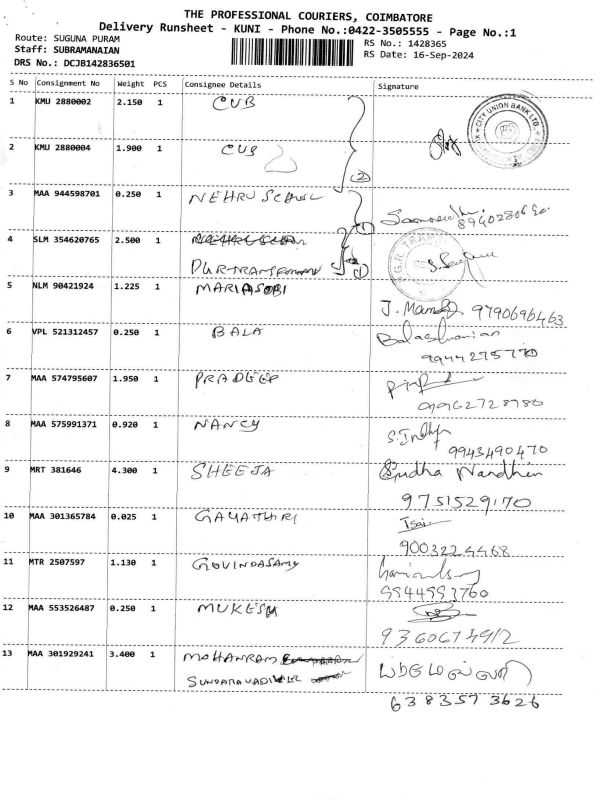 THE PROFESSIONAL COURIERS, COIMBATORE
Delivery Runsheet - KUNI - Phone No.:0422-3505555 - Page No.:1
Route: SUGUNA PURAM
RS No.: 1428365
Staff: SUBRAMANAIAN
RS Date: 16-Sep-2024
DRS No.: DCJB142836501
S No Consignment No Weight PCS Consignee Details Signature
1 KMU 2880002 2.150 1 CUB
CITY UNION BANK LTD.
2 KMU 2880004 1.900 1 CUB
(2)
3 MAA 944598701 0.250 1 NEHRU SCHOOL
(1)
4 SLM 354620765 2.500 1
(1)
5 NLM 90421924 1.225 1 MARIASOBI
J. 9790696463
6 VPL 521312457 0.250 1 BALA
9944275770
7 MAA 574795607 1.950 1 PRADEEP
9962728780
8 MAA 575991371 0.920 1 NANCY
9943490470
9 MRT 381646 4.300 1 SHEEJA Sudha Nandhin
9751529170
10 MAA 301365784 0.025 1 GAYATHRI
9003224468
11 MTR 2507597 1.130 1 GOVINDASAMY
9944993760
12 MAA 553526487 0.250 1 MUKESH
9360674912
13 MAA 301929241 3.400 1 MOHANRAM
SUNDARAVADIVEL
6383573626